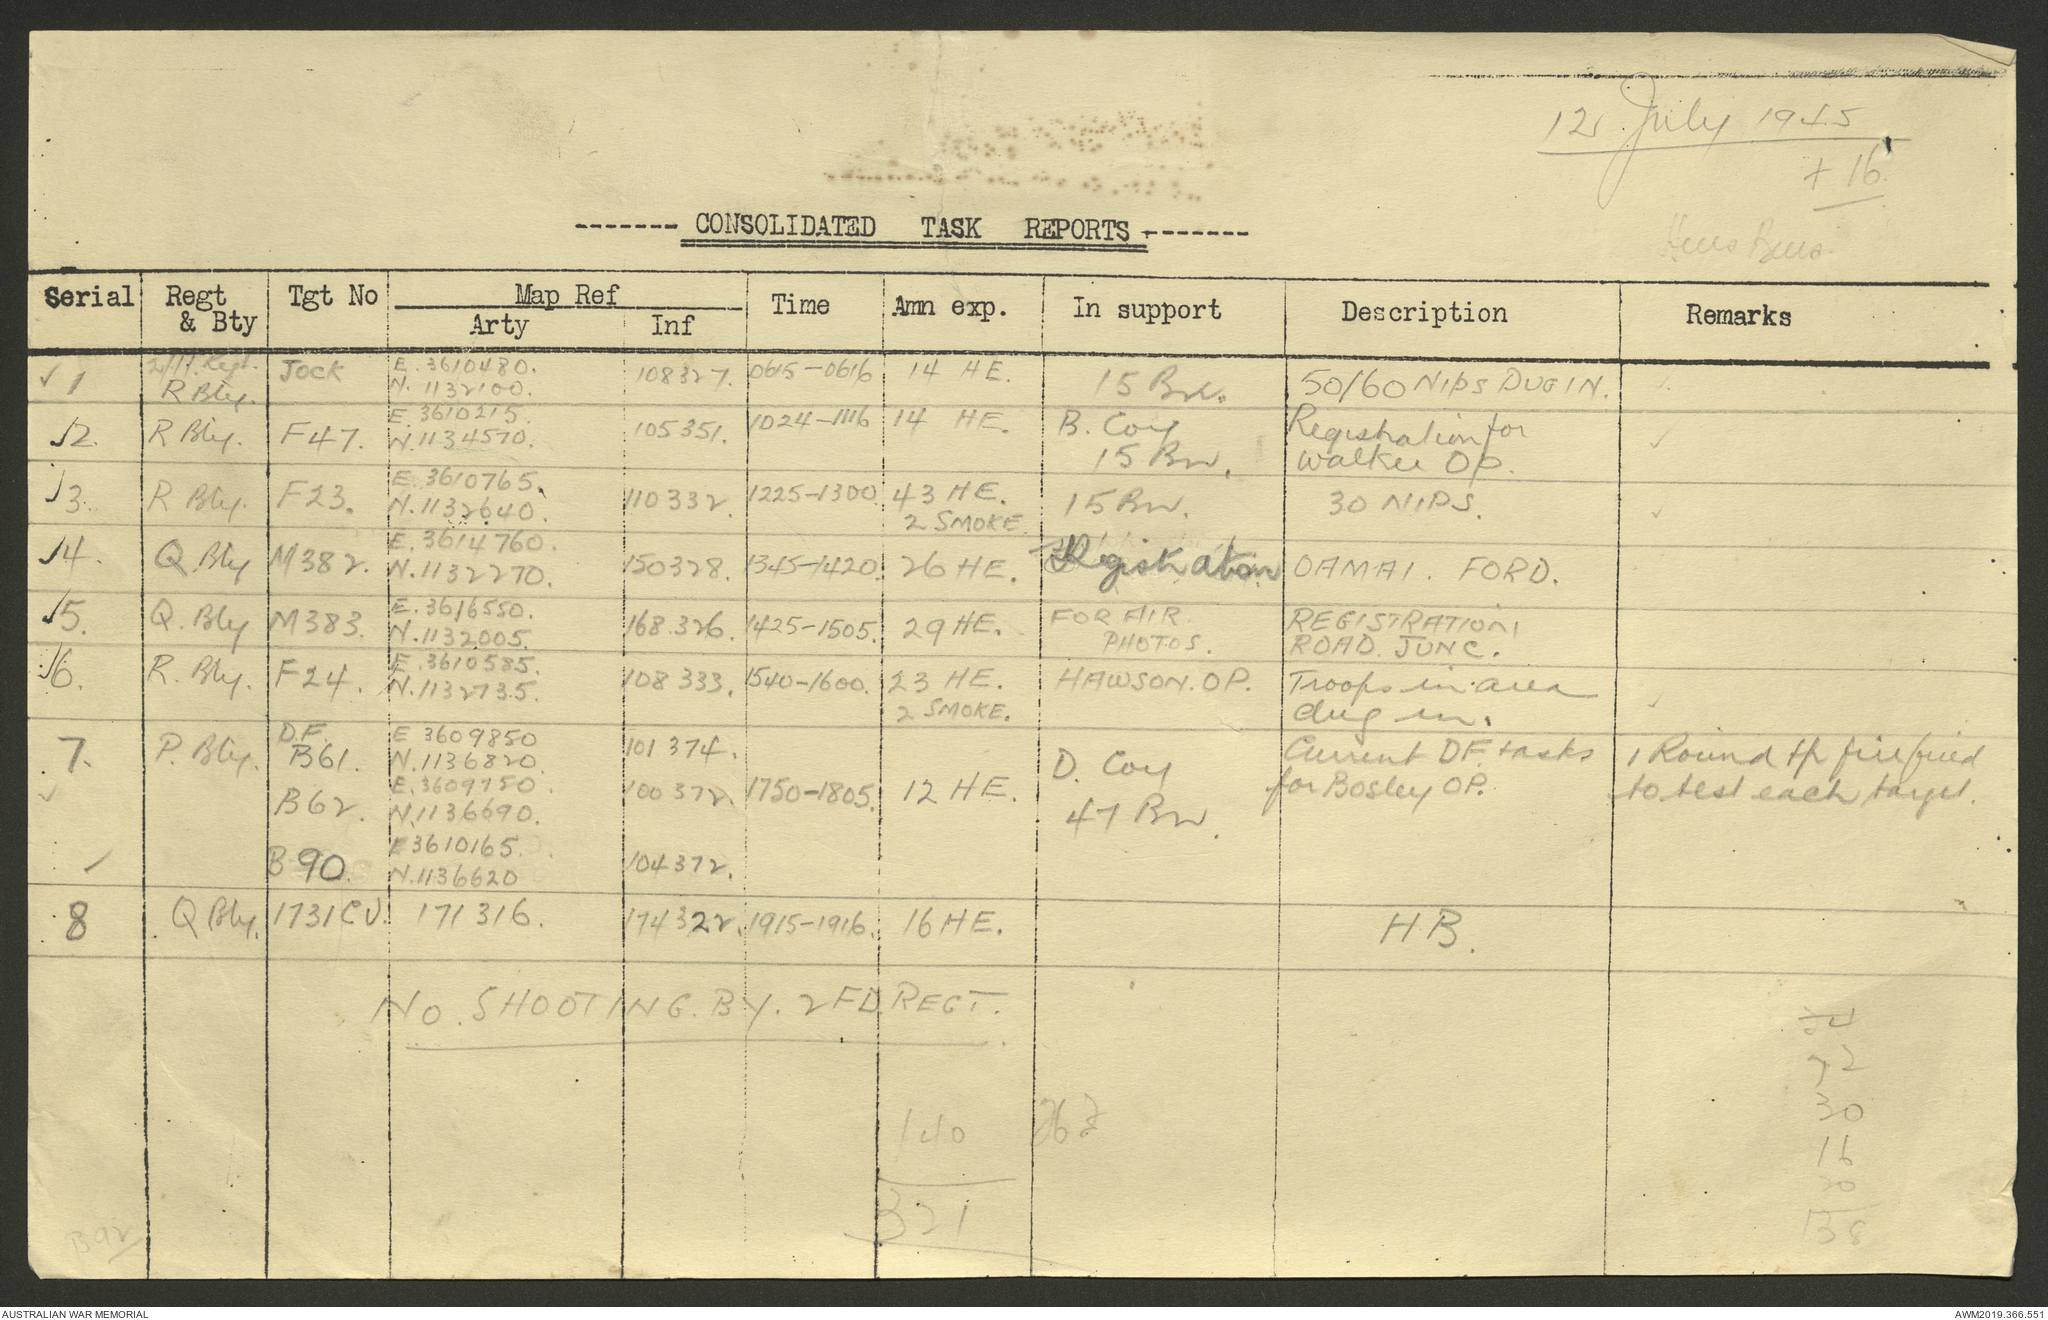 12 July 1945
+ 16
------- CONSOLIDATED TASK REPORTS -------
Serial Regt & Bty Tgt No Map Ref Arty Inf Time Amn exp. In support Description Remarks
1 R Bty. JOCK E. 3610480. N. 1132100. 108327. 0615-0616 14 HE. 15 Bn. 50/60 NIPS DUG IN.
2. R Bty. F47. E. 3610215. N. 1134570. 105351. 1024-1116 14 HE. B. Coy 15 Bn. Registration for walker OP.
3. R Bty. F23. E. 3610765. N. 1132640. 110332. 1225-1300 43 HE. 2 SMOKE 15 Bn. 30 NIPS.
4. Q Bty M382. E. 3614760. N. 1132270. 150328. 1345-1420. 26 HE. Registration OAMAI. FORD.
5. Q. Bty M383. E. 3616550. N. 1132005. 168326. 1425-1505. 29 HE. FOR AIR PHOTOS. REGISTRATION, ROAD. JUNC.
6. R. Bty. F24. E. 3610585. N. 1132735. 108333. 1540-1600. 23 HE. 2 SMOKE. HAWSON. OP. Troops in area dug in.
7. P. Bty. D.F. B61. E 3609850 N. 1136820. 101374. D. Coy 47 Bn. Current DF. tasks for Bosley OP. 1 Round fire fired to test each target.
B62. E. 3609750. N. 1136690. 100372. 1750-1805. 12 HE.
B 90. E 3610165. N. 1136620 104372.
8 Q Bty. 1731CV. 171316. 174322. 1915-1916. 16 HE. H.B.
NO. SHOOTING. BY. 2 FD. REGT.
72
30
140
16
20
321
138
B92
AUSTRALIAN WAR MEMORIAL
AWM2019.366.551